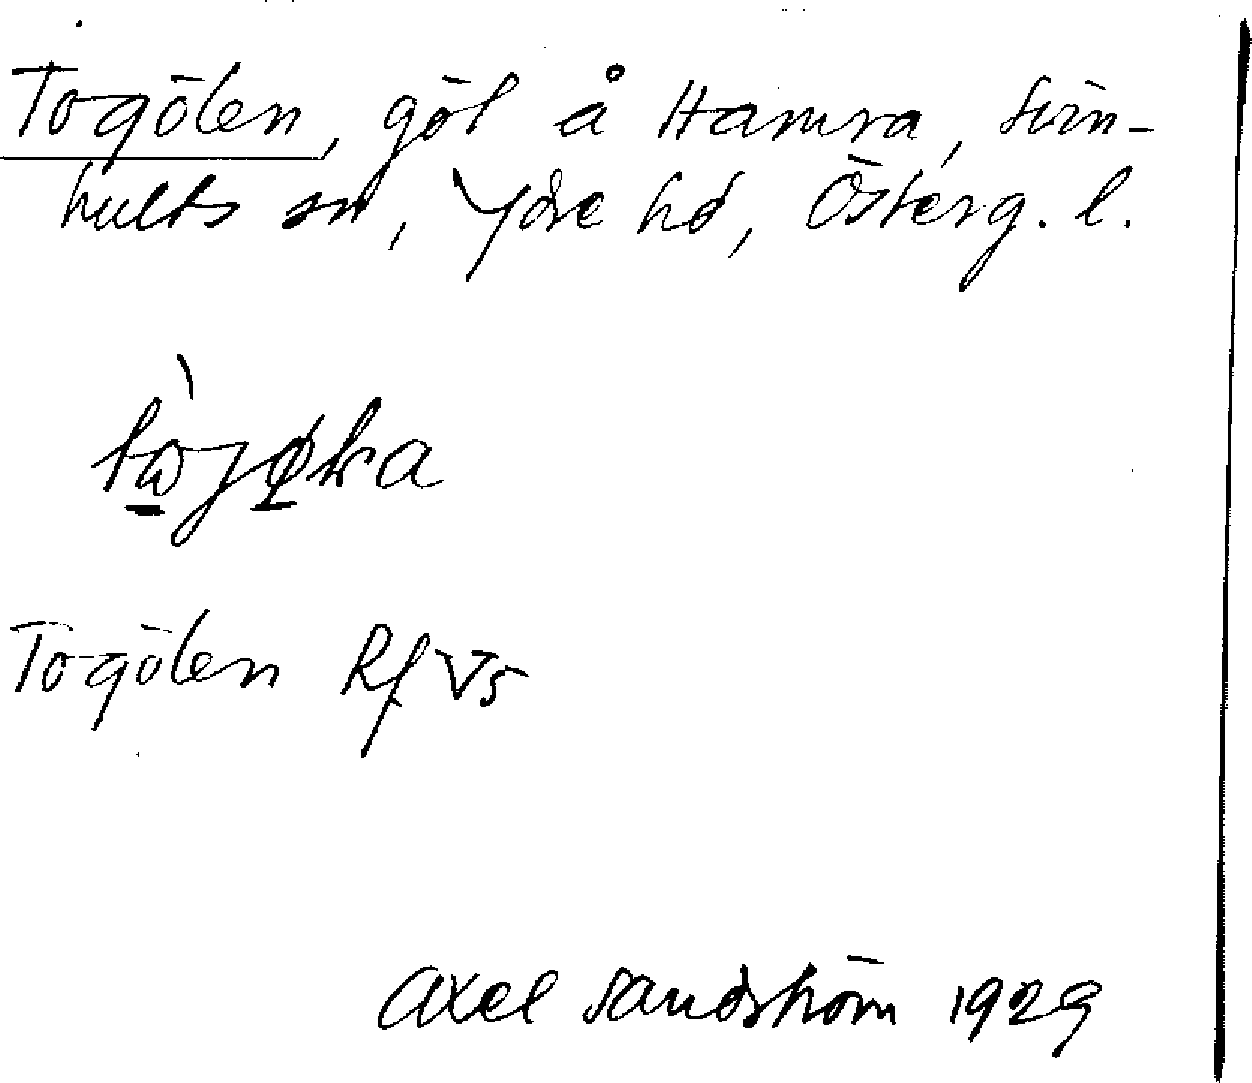 Togölen, göl å Hamra, Svin-
hults sn, Ydre hd, Österg. l.
Togölen Rf Vs
Axel Sandström 1929